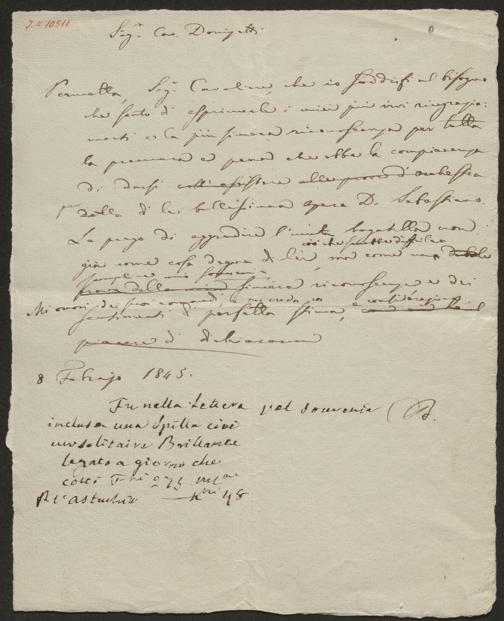 J.N 10511
Sigr. Cav. Donizetti
Permetta, Sigr. Cavaliere che io soddisfi al bisogno
che sento di esprimerle i miei più vivi ringrazia-
menti e la più sincera riconoscenza per tutta
la premura e pena che ebbe la compiacenza
di darsi coll'assistere alle prove di orchestra
della di lei bellissima opera D. Sebastiano.
La prego di aggradire l' bagatella non
già come cosa degna di lei, ma come una
sincera riconoscenza e dei
Mi onori dei suoi comandi, mi creda
sentimenti di perfetta stima,
piacere di dichiararmi
8 Febrajo 1845.
Fu nella Lettera pel souvenir
inclusa una Spilla cioè
un solitaire Brillante
legato a giorno che
costò 75
Pr l'astuchio 48